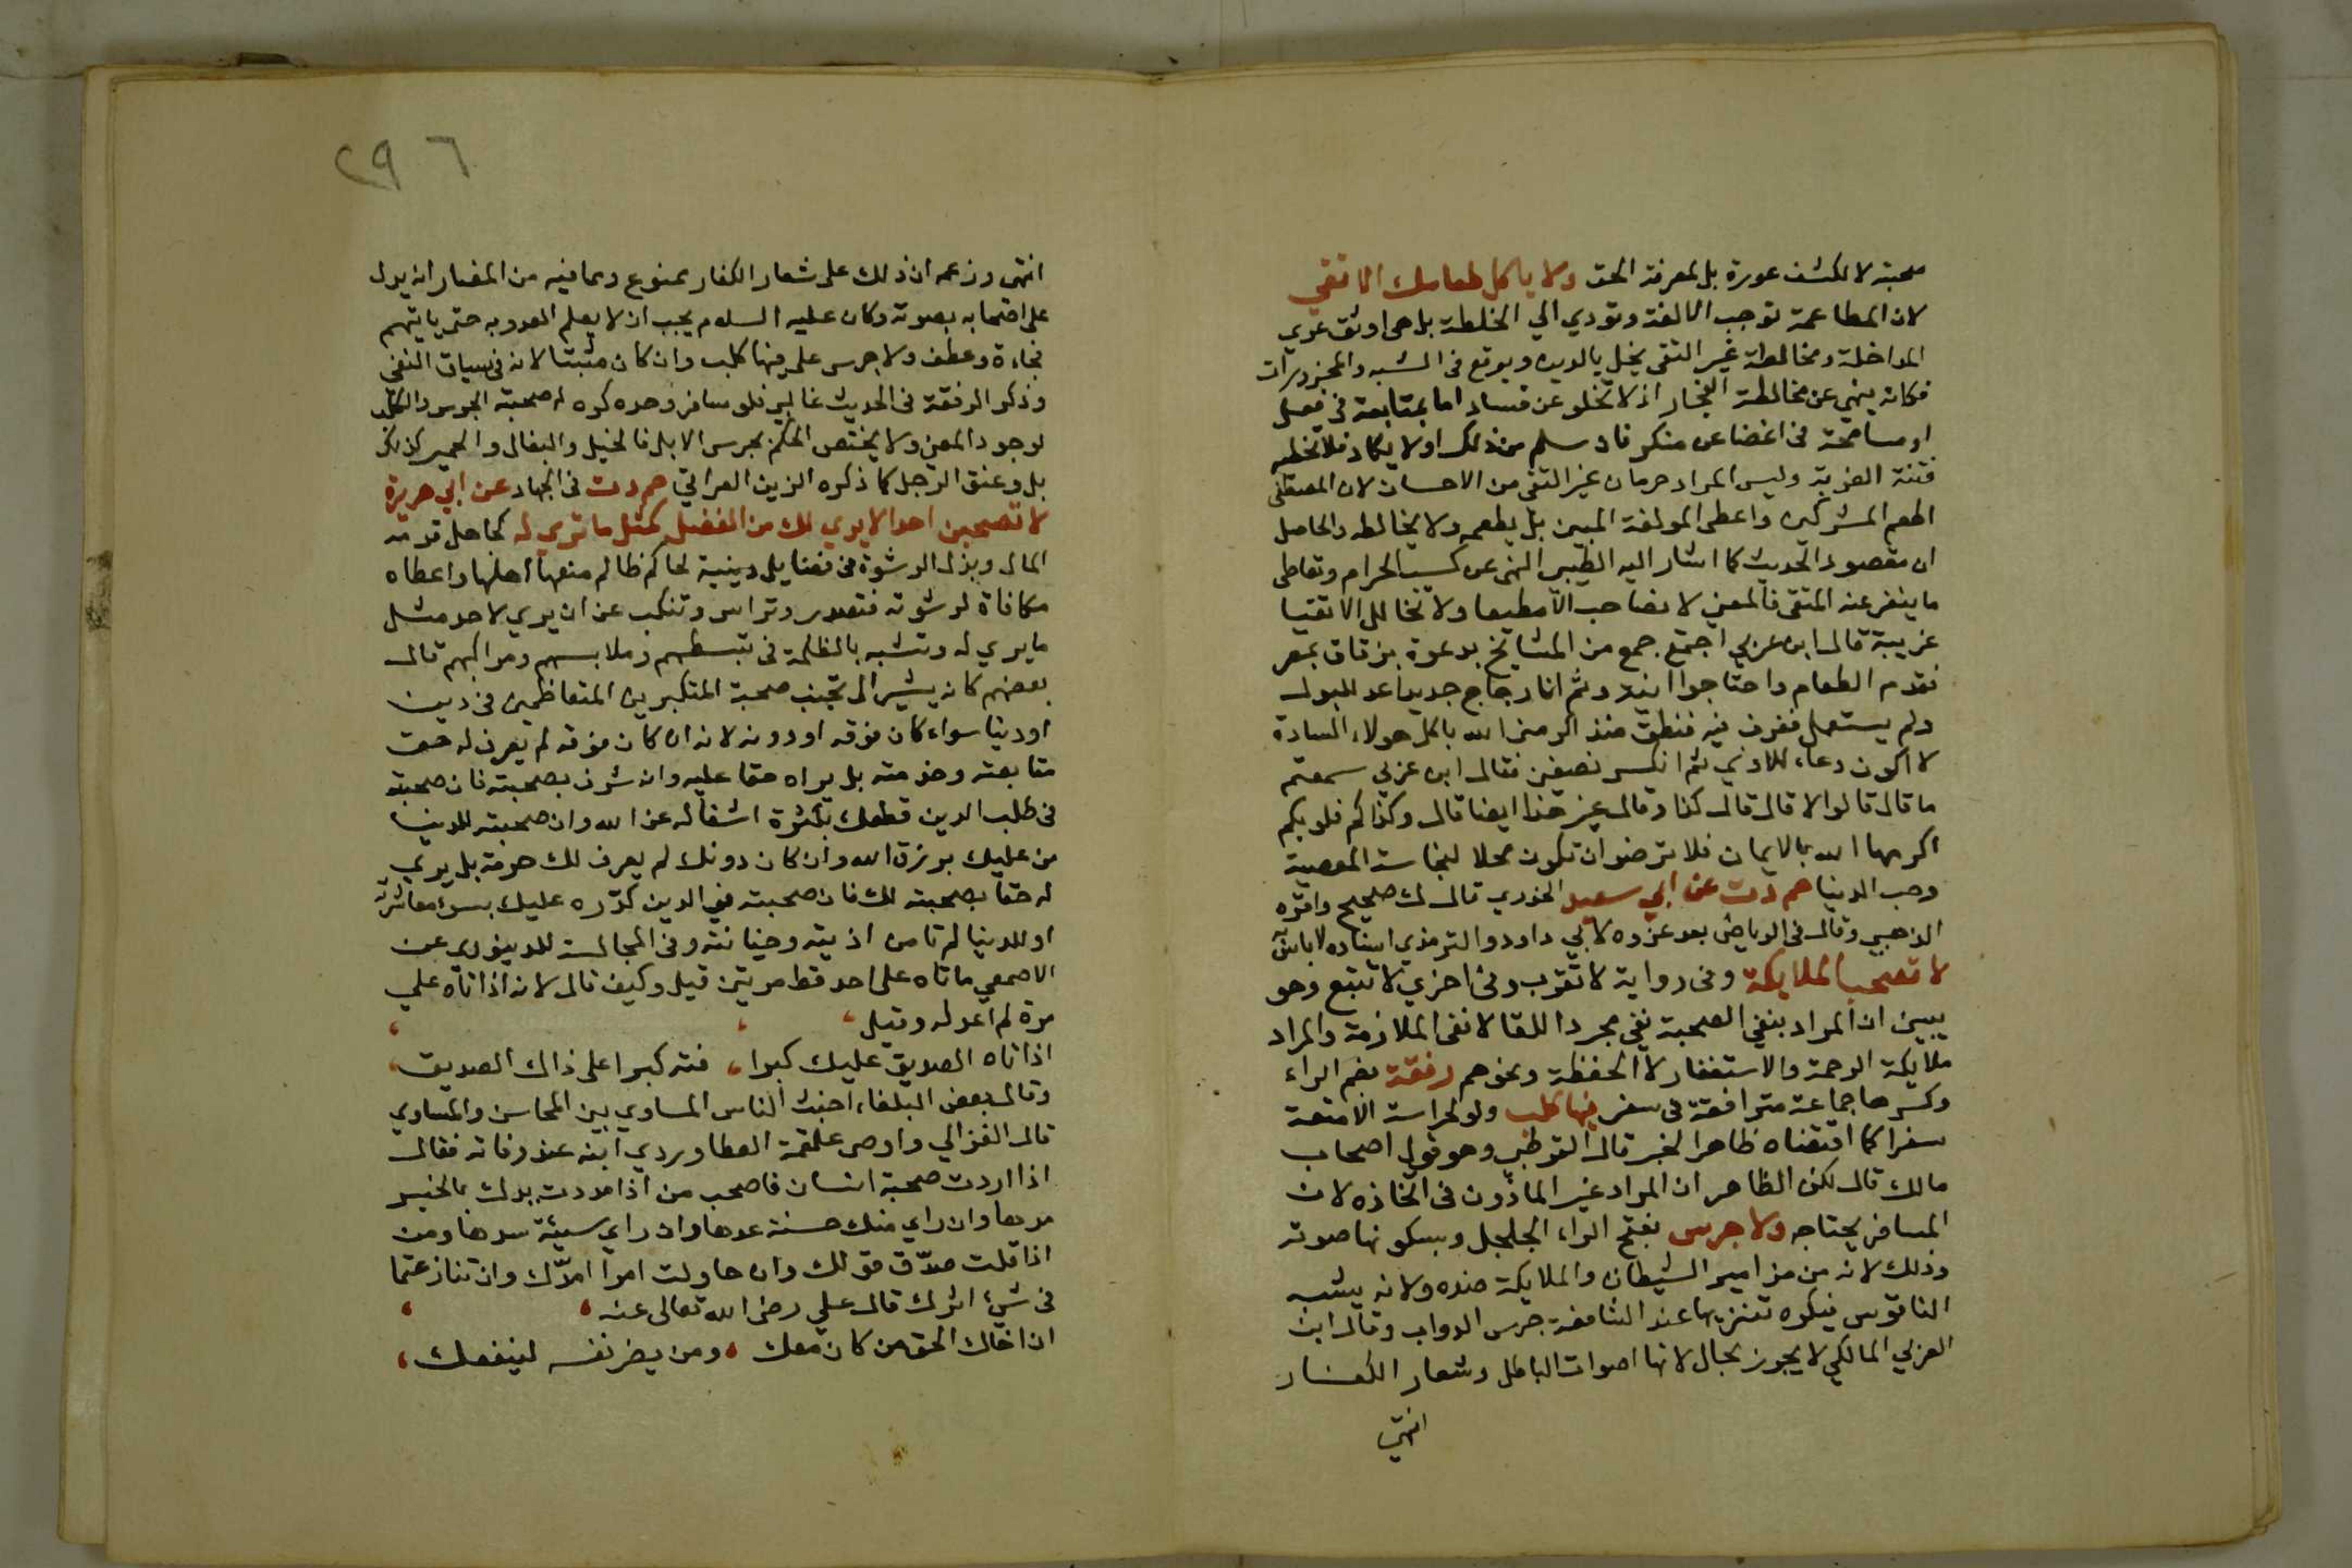 صحبة لا لكشف عورة بل لمعرفة الحق ولا ياكل طعامك الا تقي
لان المطاعمة توجب الالفة وتودي الي الخلطة بل هي اوثق عري
المداخلة ومخالطة غير التقي يخل بالدين ويوقع في الشبه والمحذورات
فكانه ينهي عن مخالطة الفجار اذ لا تخلو عن فساد اما بمتابعة في فعل
او مسامحة في اغضا عن منكر فان سلم من ذلك اولا يكاد فلا تخطيه
فتنة الغير به وليس المراد حرمان غير التقي من الاحسان لان المصطفى
اطعم المشركين واعطى المولفة المبين بل يطعمه ولا يخالطه والحاصل
ان مقصود الحديث كما اشار اليه الطيبي النهي عن كسب الحرام وتعاطي
ما ينفر عنه المتقي فالمعني لا تصاحب الا مطيعا ولا تخالل الا تقيا
غريبة قال ابن عربي اجتمع جمع من المشايخ بدعوة بزقاق بمصر
فقدم الطعام واحتاجوا انية وثم انا زجاج جديد اعد للبول
ولم يستعمل فغرف فيه فنطق منذ اكرمني الله باكل هولاء السادة
لا اكون دعاء للاذي ثم انكسر نصفين فقال ابن عربي سمعتم
ما قال قالوا لا قال قال كذا وقال غير هذا ايضا قال وكذاكم قلوبكم
اكرمها الله بالايمان فلا ترضوا ان تكون محلا لنجاسة المعصية
وحب الدنيا حم د ت عن ابي سعيد الخدري قال ك صحيح واقره
الذهبي وقال في الرياض بعد عزوه لابي داود والترمذي اسناده لا باس به
لا تصحب الملايكة وفي رواية لا تقرب وفي اخري لا تتبع وهو
يبين ان المراد بنفي الصحبة نفي مجرد اللقا لا نفي الملازمة والمراد
ملايكة الرحمة والاستغفار لا الحفظة ونحوهم رفقة بضم الراء
وكسرها جماعة مترافقة في سفر فيها كلب ولو لحراسة الامتعة
سفرا كما اقتضاه ظاهر الخبر قال القرطبي وهو قول اصحاب
مالك قال لكن الظاهر ان المراد غير الماذون في اتخاذه لان
المسافر يحتاجه ولا جرس بفتح الراء الجلجل وبسكونها صوته
وذلك لانه من مزامير الشيطان والملايكة ضده ولانه يشبه
الناقوس فيكره تنزيها عند الشافعية جرس الدواب وقال ابن
العربي المالكي لا يجوز بحال لانها اصوات الباطل وشعار الكفار
انتهى
٢٩٦
انتهى وزعمه ان ذلك على شعار الكفار ممنوع ومما فيه من المضار انه يدل
على اصحابه بصوته وكان عليه السلام يحب ان لا يعلم العدو به حتى ياتيهم
فجاءة وعطف ولا جرس على فيها كلب وان كان مثبتا لانه في سياق النفي
وذكر الرفقة في الحديث غالبي فلو سافر وحده كره له صحبة الجرس والكلب
لوجود المعنى ولا يختص الحكم بجرس الابل فالخيل والبغال والحمير كذلك
بل وعنق الرجل كما ذكره الزين العراقي حم د ت في الجهاد عن ابي هريرة
لا تصحبن احدا لا يري لك من الفضل كمثل ما تري له كجاهل قدمه
المال وبذل الرشوة في فضايل دينية لحاكم ظالم منعها اهلها واعطاه
مكافاة لرشوته فتصدر وتراس وتنكب عن ان يري لاحد مثل
ما يري له وتشبه بالظلمة في تبسطهم وملابسهم ومراكبهم قال
بعضهم كانه يشير الى تجنب صحبة المتكبرين المتعاظمين في دين
او دنيا سواء كان فوقه او دونه لانه ان كان فوقه لم يعرف له حق
متابعته وخدمته بل يراه حقا عليه وان شرف بصحبته فان صحبته
في طلب الدين قطعك بكثرة اشغاله عن الله وان صحبته للدنيا
من عليك برزق الله وان كان دونك لم يعرف لك حرمة بل يري
له حقا بصحبته لك فان صحبته في الدين كدره عليك بسوء معاشرته
او للدنيا لم تامن اذيته وخيانته وفي المجالسة للدينوري عن
الاصمعي ما تاه على احد قط مرتين قيل وكيف قال لانه اذا تاه علي
مرة لم اعد له وقيل
اذا تاه الصديق عليك كبرا ، فته كبرا على ذاك الصديق
وقال بعض البلغاء اخبث الناس المساوي بين المحاسن والمساوي
قال الغزالي واوصى علقمة العطاردي ابنه عند وفاته فقال
اذا اردت صحبة انسان فاصحب من اذا مددت يدك بالخير
مدها وان راي منك حسنة عدها وان راي سيئة سدها ومن
اذا قلت صدق قولك وان حاولت امرا امدك وان تنازعتما
في شيء اثرك قال علي رضى الله تعالى عنه
ان اخاك الحق من كان معك ، ومن يضر نفسه لينفعك ،